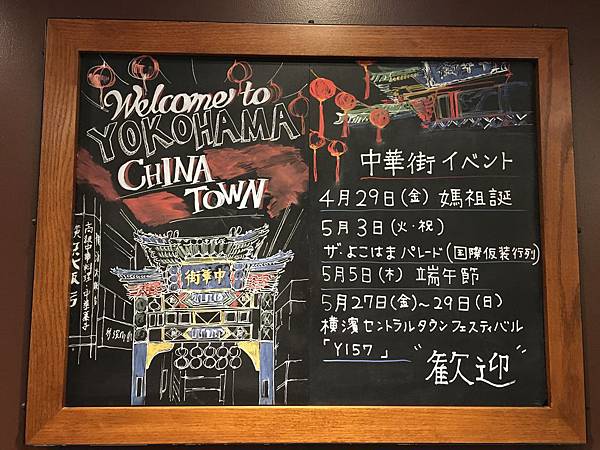 Welcome to
YOKOHAMA
CHINA
TOWN
中華街
高級中華料理・中華菓子
中華街イベント
4月29日(金) 媽祖誕
5月3日(火・祝)
ザ・よこはまパレード(国際仮装行列)
5月5日(木) 端午節
5月27日(金)～29日(日)
横濱セントラルタウンフェスティバル
「Y157」
"歓迎"